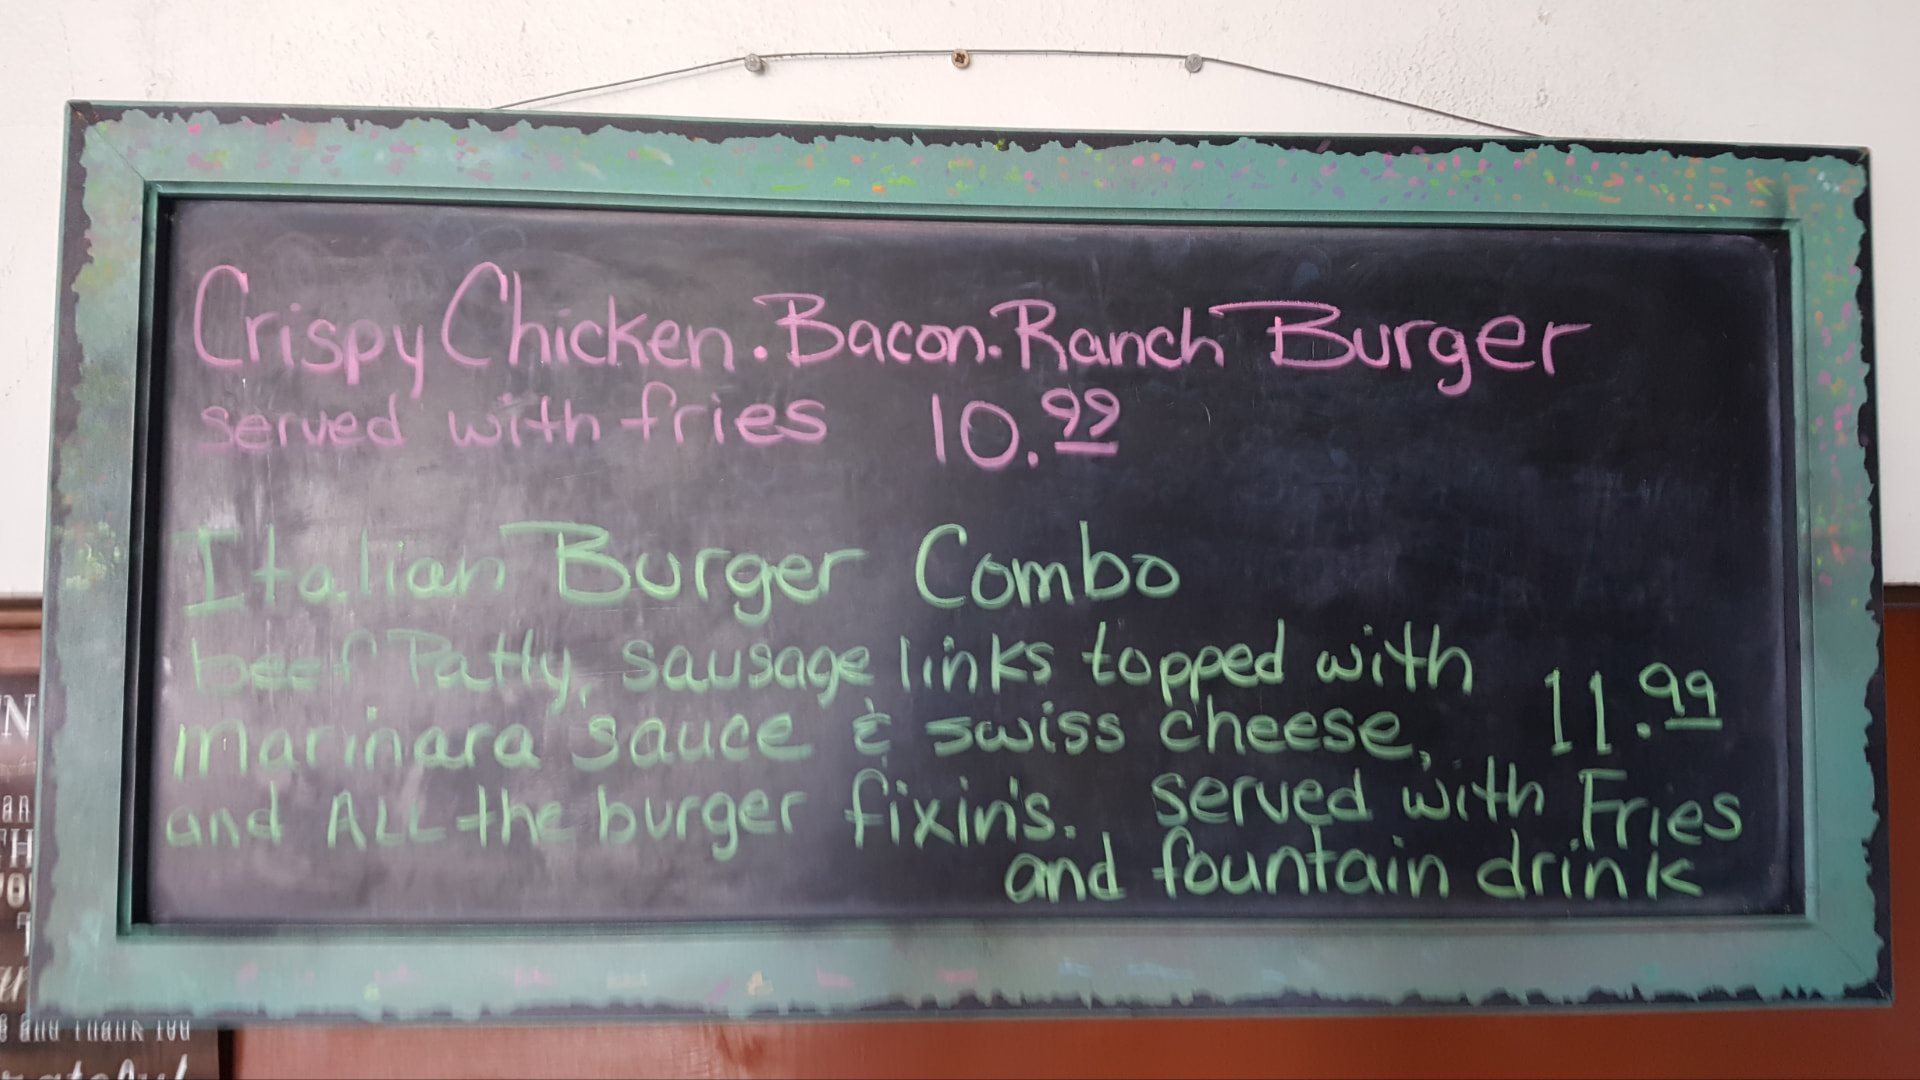 Crispy Chicken. Bacon. Ranch Burger
served with fries 10.99
Italian Burger Combo
beef Patty, sausage links topped with
marinara sauce & swiss cheese, 11.99
and ALL the burger fixin's. served with Fries
and fountain drink
and thank you